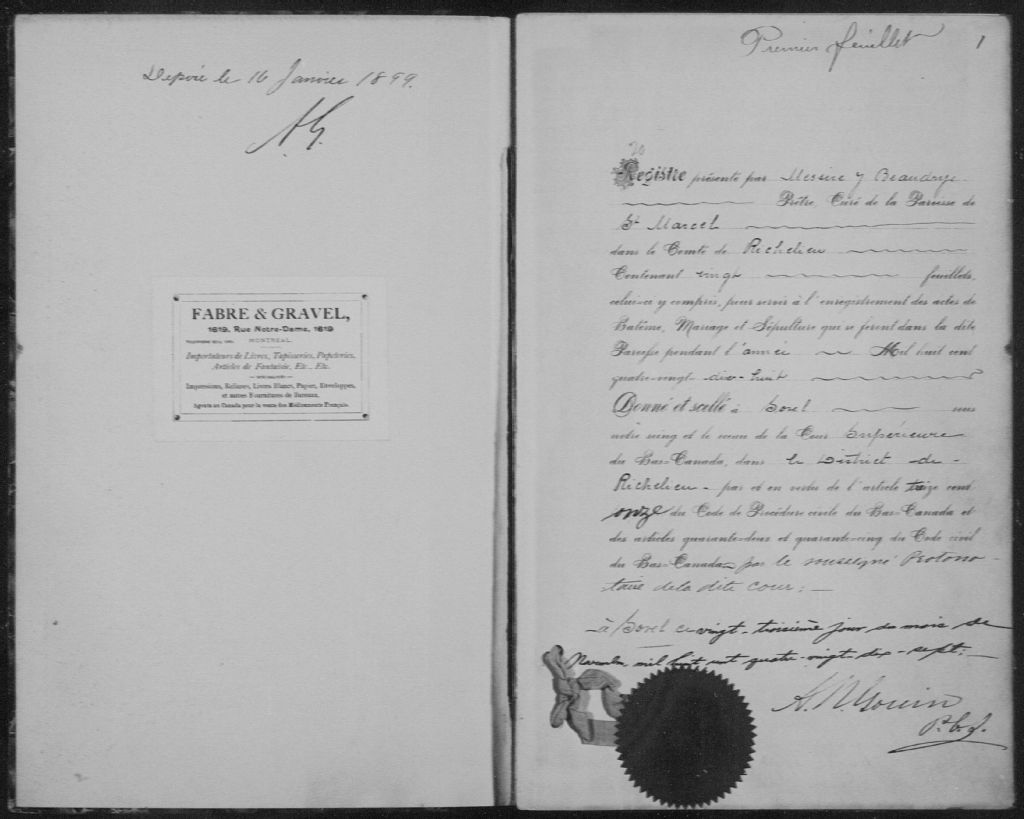 Déposé le 16 Janvier 1899.
A.G.
FABRE & GRAVEL,
1619, Rue Notre-Dame, 1619
MONTREAL.
Importateurs de Livres, Tapisseries, Papeteries,
Articles de Fantaisie, Etc., Etc.
Impressions, Reliures, Livres Blancs, Papier, Enveloppes,
et autres Fournitures de Bureaux.
Agents au Canada pour la vente des Médicaments Français.
Premier feuillet 1
20
Registre présenté par Messire J Beaudrye
Prêtre, Curé de la Paroisse de
St Marcel
dans le Comté de Richelieu
Contenant vingt feuillets,
celui-ci y compris, pour servir à l'enregistrement des actes de
Batême, Mariage et Sépulture qui se feront dans la dite
Paroisse pendant l'année Mil huit cent
quatre-vingt dix-huit
Donné et scellé à Sorel sous
notre seing et le sceau de la Cour Supérieure
du Bas-Canada, dans le District de
Richelieu - par et en vertu de l'article treize cent
onze du Code de Procédure civile du Bas-Canada et
des articles quarante-deux et quarante-cinq du Code civil
du Bas-Canada par le soussigné Protono-
taire de la dite cour; —
à Sorel ce vingt-troisième jour du mois de
Novembre mil huit cent quatre-vingt-dix-sept; —
A. N. Gouin
P.C.S.